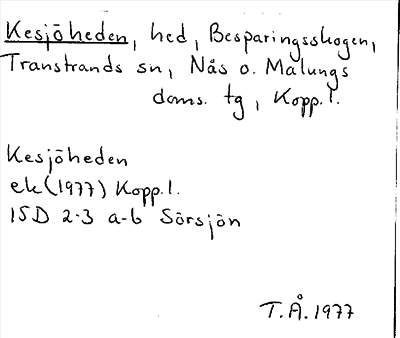 Kesjöheden, hed, Besparingsskogen,
Transtrands sn, Nås o. Malungs
doms. tg, Kopp.l.
Kesjöheden
ek (1977) Kopp.l.
15D 2-3 a-b Sörsjön
T.Å. 1977